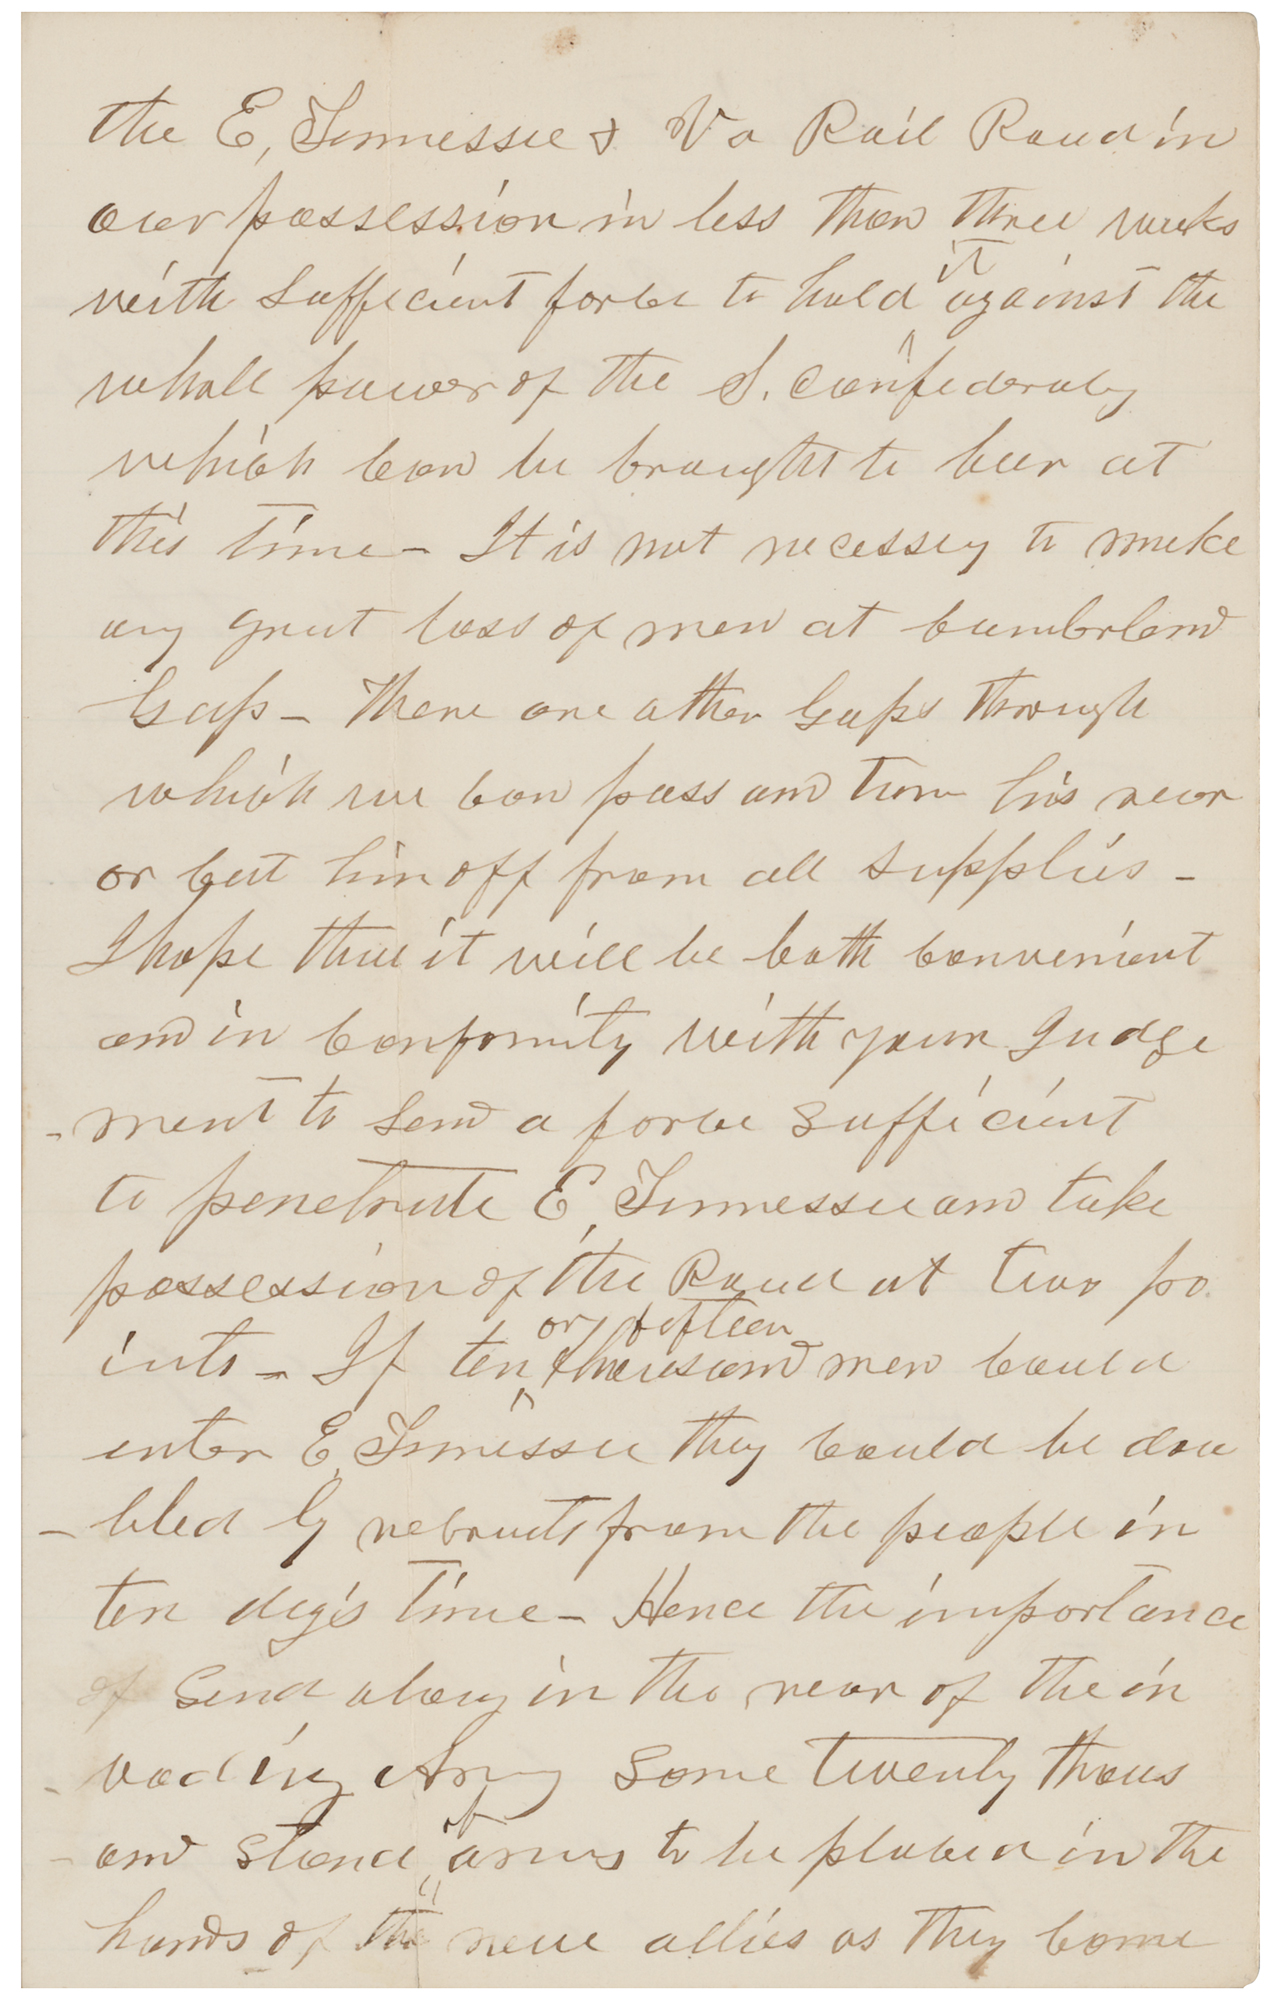 the E, Tennessee & Va Rail Road in
our possession in less than three weeks
with sufficient force to hold it against the
whole power of the S. Confederacy
which can be brought to bear at
this time - It is not necessey to make
any great loss of men at Cumberland
Gap - There are other Gaps through
which we can pass and turn his rear
or cut him off from all supplies -
I hope that it will be both convenient
and in conformity with your Judge
-ment to send a force sufficient
to penetrate E, Tennessee and take
possession of the Road at two po
ints - If ten or fifteen thousand men could
enter E, Tennessee they could be dou
-bled by recruits from the people in
ten day's time - Hence the importance
of send along in the rear of the in
-vading Army some twenty thous
-and stand of arms to be placed in the
hands of the new allies as they come